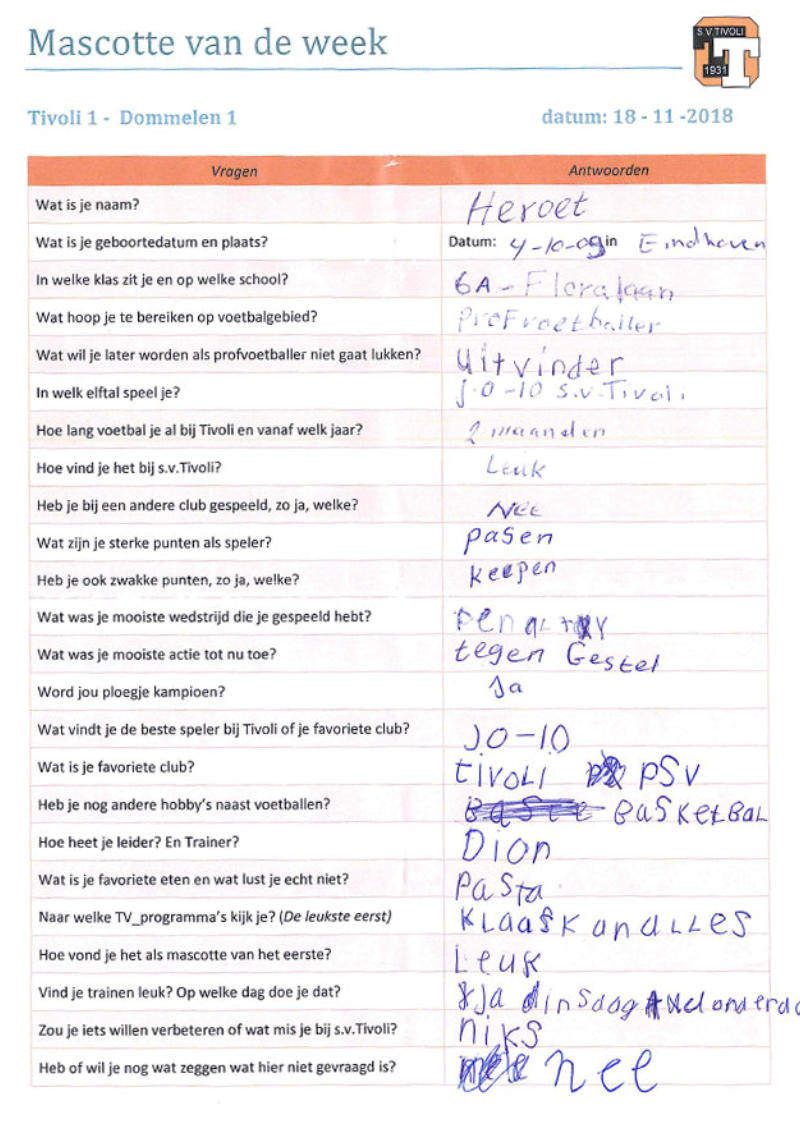 Mascotte van de week
S.V. TIVOLI
1931
Tivoli 1 - Dommelen 1 datum: 18 - 11 -2018
Vragen Antwoorden
Wat is je naam? Heroet
Wat is je geboortedatum en plaats? Datum: 4-10-09 in Eindhoven
In welke klas zit je en op welke school? 6A - Floralaan
Wat hoop je te bereiken op voetbalgebied? Profvoetballer
Wat wil je later worden als profvoetballer niet gaat lukken? Uitvinder
In welk elftal speel je? J.O-10 S.V. Tivoli
Hoe lang voetbal je al bij Tivoli en vanaf welk jaar? 2 maanden
Hoe vind je het bij s.v.Tivoli? Leuk
Heb je bij een andere club gespeeld, zo ja, welke? Nee
Wat zijn je sterke punten als speler? pasen
Heb je ook zwakke punten, zo ja, welke? keepen
Wat was je mooiste wedstrijd die je gespeeld hebt?
Wat was je mooiste actie tot nu toe? tegen Gestel
Word jou ploegje kampioen? Ja
Wat vindt je de beste speler bij Tivoli of je favoriete club? JO-10
Wat is je favoriete club? tivoli PSV
Heb je nog andere hobby's naast voetballen? BASKETBAL
Hoe heet je leider? En Trainer? Dion
Wat is je favoriete eten en wat lust je echt niet? Pasta
Naar welke TV_programma's kijk je? (De leukste eerst) KLAAS KAN ALLES
Hoe vond je het als mascotte van het eerste? Leuk
Vind je trainen leuk? Op welke dag doe je dat? ja dinsdag
Zou je iets willen verbeteren of wat mis je bij s.v.Tivoli? niks
Heb of wil je nog wat zeggen wat hier niet gevraagd is? nee